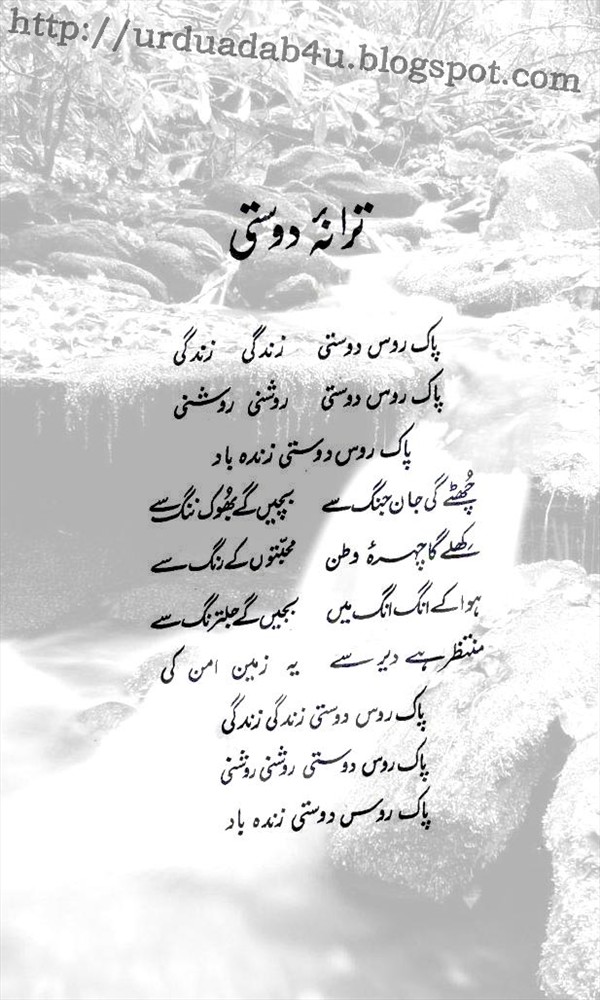 http://urduadab4u.blogspot.com
ترانۂ دوستی
پاک روس دوستی زندگی زندگی
پاک روس دوستی روشنی روشنی
پاک روس دوستی زندہ باد
چُھٹے گی جان جنگ سے بچیں گے بھُوک ننگ سے
کھِلے گا چہرۂ وطن محبّتوں کے رنگ سے
ہوا کے انگ انگ میں بجیں گے جلترنگ سے
منتظر ہے دیر سے یہ زمین امن کی
پاک روس دوستی زندگی زندگی
پاک روس دوستی روشنی روشنی
پاک روس دوستی زندہ باد